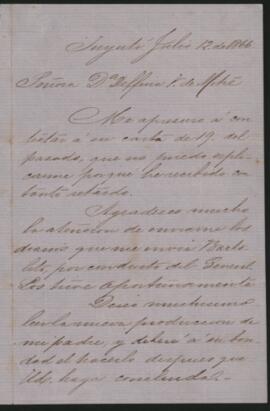 Tuyutí Julio 12 de 1866
Señora Da Delfina V. de Mitre
Me apresuro á con
testar á su carta de 19 del
pasado, que no puedo espli
carme porque he recibido con
tanto retardo.
Agradesco mucho
la atencion de enviarme los
diarios que me envia Barto
lito, por conducto del
Los tiene oportunamente
Deseo muchisimo
leer la nueva produccion de
mi padre, y deberé á su bon
dad el hacerlo despues que
Ud. haya concluido.